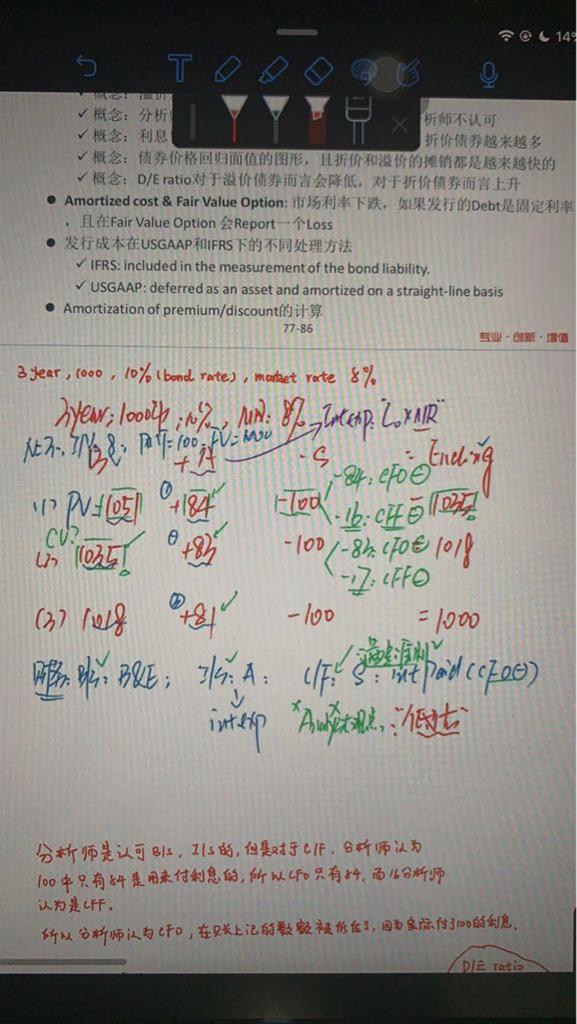 14%
✓ 概念：溢价
✓ 概念：分析 析师不认可
✓ 概念：利息 折价债券越来越多
✓ 概念：债券价格回归面值的图形，且折价和溢价的摊销都是越来越快的
✓ 概念：D/E ratio对于溢价债券而言会降低，对于折价债券而言上升
● Amortized cost & Fair Value Option: 市场利率下跌，如果发行的Debt是固定利率
，且在Fair Value Option 会Report一个Loss
● 发行成本在USGAAP和IFRS下的不同处理方法
✓ IFRS: included in the measurement of the bond liability.
✓ USGAAP: deferred as an asset and amortized on a straight-line basis
● Amortization of premium/discount的计算
77-86
专业·创新·增值
3 year, 1000, 10% (bond rate), market rate 8%
3 year; 1000; 10%, MR: 8% Int exp: "L0×MR"
N=3, I/Y=8; PMT=100; FV=1000
+A -S = Ending
(1) PV=1051 ① +84 -100 -84: CFO⊖
-16: CFF⊖ =1035
CV?
(2) 1035 +83 -100 -83: CFO⊖ 1018
-17: CFF⊖
(3) 1018 +81 -100 =1000
B/S: B&E; I/S: A: C/F: S: int paid (CFO⊖)
int exp Analyst观点: "低估"
分析师是认可B/S、I/S的，但是对于C/F，分析师认为
100中只有84是用来付利息的，所以CFO只有84，而16分析师
认为是CFF。
所以分析师认为CFO，在账上记的数额被低估了，因为实际付了100的利息。
D/E ratio